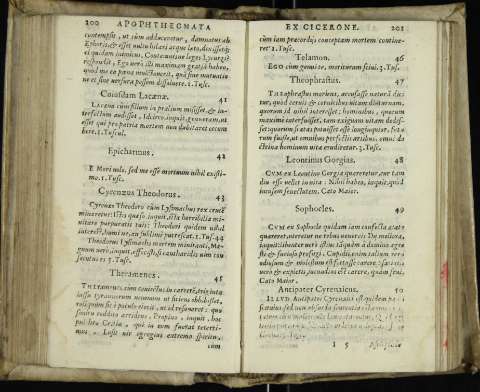 200 APOPHTHEGMATA
contempsit, ut cùm ad duceretur, damnatus ab
Ephoris, & esset vultu hilari atque læto, dicesset
ei quidam inimicus, Contemnisne leges Lycurgi?
respondit, Ego verò illi maximam gratiã habeo,
quod me ea pœna multauerit, quã sine mutuatio-
ne et sine versura possem dissoluere. 1. Tusc.
Cuiusdam Lacænæ. 41
LACÆNA cùm filium in prælium misisset, & in-
terfectum audisset, Idcirco, inquit, genueram, ut
esset qui pro patria mortem non dubitaret occum
bere. 1. Tuscul.
Epicharmus. 42
EMori nolo, sed me esse mortuum nihil existi-
mo. 1. Tusc.
Cyrenæus Theodorus. 43
Cyrenæo Theodoro cùm Lysimachus rex crucē
minaretur: Istis quæso, inquit, ista horribilia mi-
nitare purpuratis tuis: Theodori quidem nihil
interest, humi ne, an sublimè putrescat. 1. Tusc. 44
Theodorus Lysimacho mortem minitanti, Ma-
gnum verò, inquit, effecisti, si cantharidis vim con
secutus es. 5. Tusc.
Theramenes. 45
THERAMENES, cùm coniectus in carcerē, triginta
iussu tyrannorum venenum ut sitiens obbibisset,
reliquum sic è poculo eiecit, ut id resonaret: quo
sonitu reddito arridens, Propino, inquit, hoc
pulchro Critiæ, qui in eum fuerat teterri-
mus. Lusit vir egregius extremo spiritu,
cùm
EX CICERONE. 201
cùm iam præcordiis conceptam mortem contine-
ret. 1. Tusc.
Telamon. 46
EGO cùm genui, moriturum sciui. 3. Tusc.
Theophrastus. 47
THEOPHRASTUS moriens, accusasse naturã dici
tur, quòd ceruis & cornicibus vitam diuturnam,
quorum id nihil interesset: hominibus, quorum
maximè interfuisset, tam exiguam vitam dedis-
set: quorum si ætas potuisset esse longinquior, futu-
rum fuisse, ut omnibus perfectis artibus, omni do
ctrina hominum vita erudiretur. 3. Tusc.
Leontinus Gorgias. 48
CVM ex Leontino Gorgia quæreretur, cur tam
diu esset vellet in vita: Nihil habeo, inquit, quod
incusem senectutem. Cato Maior.
Sophocles. 49
CVM ex Sophocle quidam iam confecto ætate
quæreret, uteretur ne rebus venereis: Dii meliora,
inquit: libenter verò istinc tãquam à domino agre
sti & furioso profugi. Cupidis enim talium rerũ
odiosum & molestum est fortasse carere: satiatis
verò & expletis, iucundius est carere, quàm frui.
Cato Maior.
Antipater Cyrenaicus. 50
ILLVD Antipatri Cyrenaici est quidem
I 5